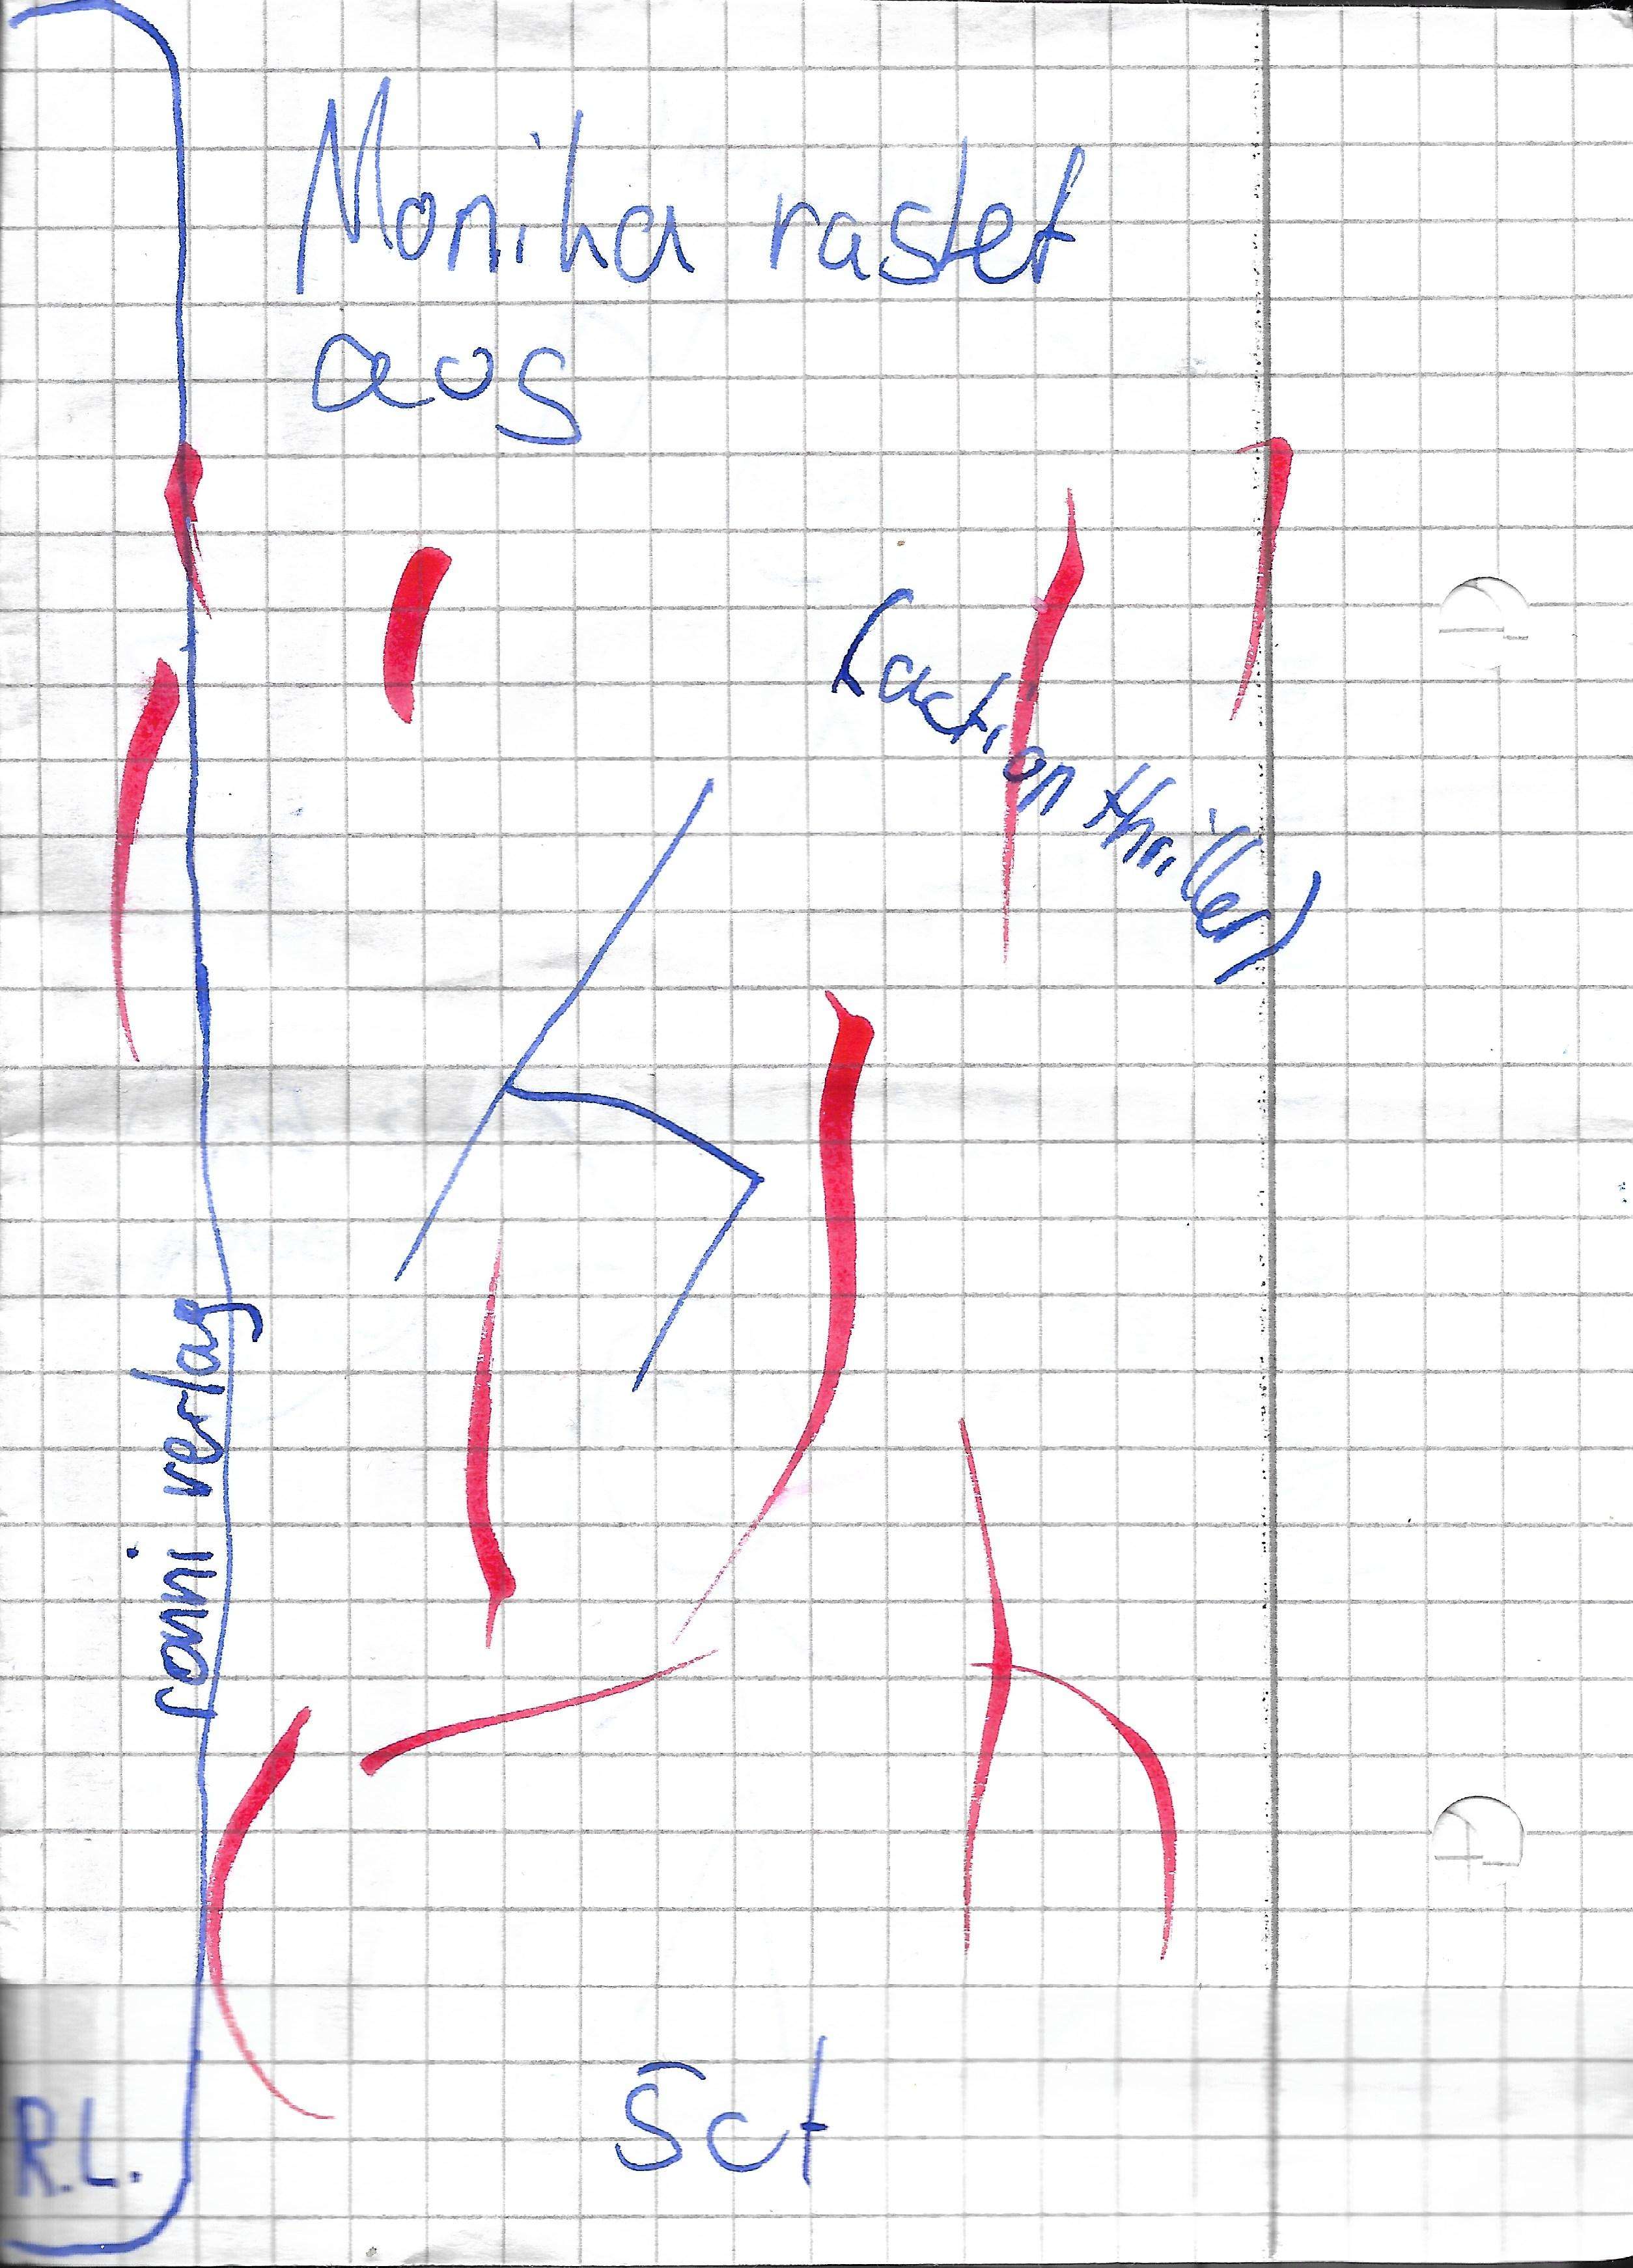 Monika rastet
aus
(action thriller)
conni verlag
Sct
R.L.